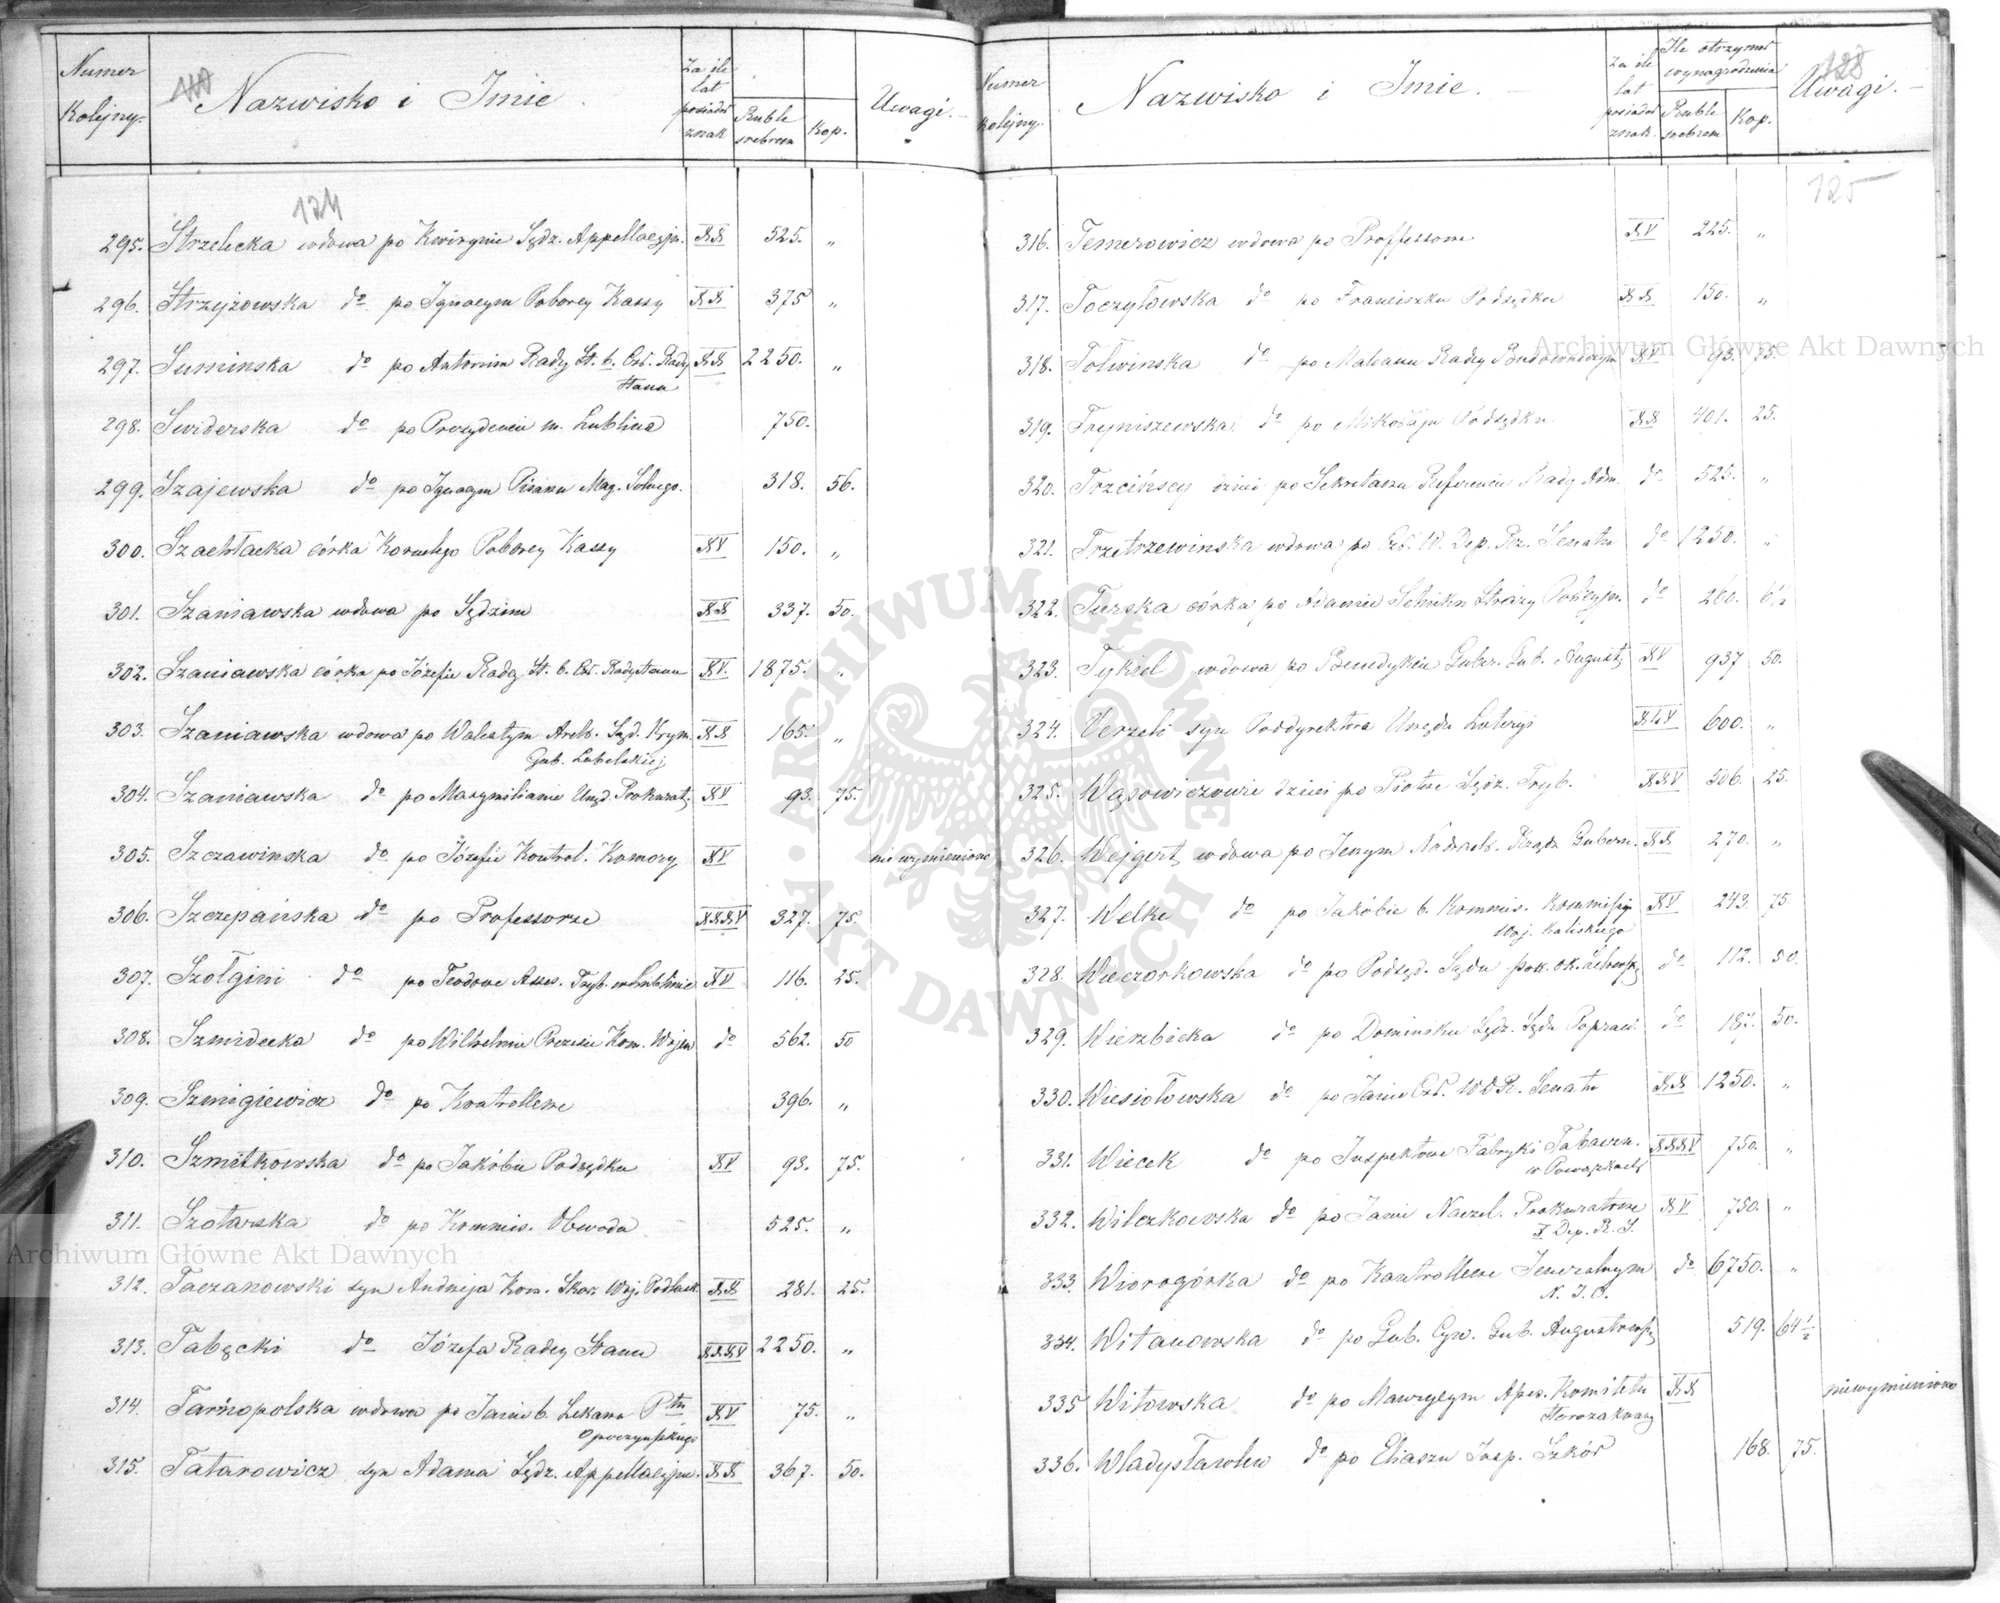 Numer Kolejny.
Nazwisko i Imie.
Za ile lat posiadał znak
Ruble srebrem
Kop.
Uwagi.
124
295. Strzelecka wdowa po Kwirynie Sędz. Appellacyjn. XX 525. „
296. Strzyżowska do po Ignacym Poborcy Kassy XX 375 „
297. Suminska do po Antonim Radcy St. b. Czł. Rady XX 2250. „
Stanu
298. Swiderska do po Prezydencie m. Lublina 750.
299. Szajewska do po Ignacym Pisarzu Mag. Solnego. 318. 56.
300. Szachłacka córka Kornelego Poborcy Kassy XV 150. „
301. Szaniawska wdowa po Sędzim XX 337. 50.
302. Szaniawska córka po Józefie Radcy St. b. Czł. Rady Stanu XV. 1875. „
303. Szaniawska wdowa po Walentym Arch. Sąd. Krym. XX 165. „
Gub. Lubelskiej
304. Szaniawska do po Maxymilianie Urzęd. Prokurat. XV 93. 75.
305. Szczawinska do po Józefie Kontrol. Komory XV niewymieniono
306. Szczepańska do po Professorze XXXV 327. 75.
307. Szołgini do po Teodorze Asses. Tryb. w Lublinie XV 116. 25.
308. Szmidecka do po Wilhelmie Prezesie Kom. Wojew do 562. 50
309. Szmigiewicz do po Kontrollerze 396. „
310. Szmitkowska do po Jakóbie Podsędku XV 93. 75.
311. Szotarska do po Kommis. Obwodu 525. „
312. Taczanowski syn Andrzeja Kom. Skar. Woj. Podlask. XX 281. 25.
313. Tabęcki do Józefa Radcy Stanu XXXV 2250. „
314. Tarnopolska wdowa po Janie b. Lekarzu Ptu XV 75. „
Opoczyńskiego
315. Tatarowicz syn Adama Sędz. Appellacyjn. XX 367. 50.
Numer kolejny.
Nazwisko i Imie.
Za ile lat posiadał znak
Ile otrzymał wynagrodzenia
Ruble srebrem
Kop.
Uwagi.
125
316. Temerowicz wdowa po Proffessorze XV 225. „
317. Toczyłowska do po Franciszku Podsędku XX 150. „
318. Tołwinska do po Radcy Budowniczym XV 93. 75.
319. Tryniszewska do po Mikołaju Podsędku XX 401. 25.
320. Trzcińscy dzieci po Sekretarzu Referencie Rady Adm. do 525. „
321. Trzetrzewinska wdowa po Czł. W. Dep. Rz. Senatu do 1250. „
322. Turska córka po Adamie Setniku Straży Policyjn. do 260. 6½
323. Tykiel wdowa po Benedykcie Guber. Gub. August. XV 937 50.
324. Verzeli syn Poddyrektora Urzędu Loteryi XLV 600. „
325. Wąsowiczowie dzieci po Piotrze Sędz. Tryb. XXV 506. 25.
326. Wejgert wdowa po Jerzym Nadrach. Rządu Gubern. XX 270. „
327. Welke do po Jakóbie b. Kommis. Kommissyi XV 243. 75.
Woj. Kaliskiego
328. Wieczorkowska do po Podsęd. Sądu do 112. 50.
329. Wierzbicka do po Dominiku Sędz. Sądu Popraw. do 187. 50.
330. Wiesiołowska do po Janie Czł. W D R. Senatu XX 1250. „
331. Wiecek do po Inspektorze Fabryki Tabaczn. XXXV 750. „
w Powązkach
332. Wilczkowska do po Janie Naczel. Prokuratorze XV 750. „
X Dep. R. S.
333. Wiorogórka do po Kontrollerze Jeneralnym do 6750. „
N. I. O.
334. Witanowska do po Gub. Cyw. Gub. Augustowsk. 519. 64½
335 Witowska do po Maurycym Komitetu XX niewymieniono
336. Władysławlew do po Eliaszu Insp. Szkół 168. 75.
Archiwum Główne Akt Dawnych
Archiwum Główne Akt Dawnych
ARCHIWUM GŁÓWNE · AKT DAWNYCH ·